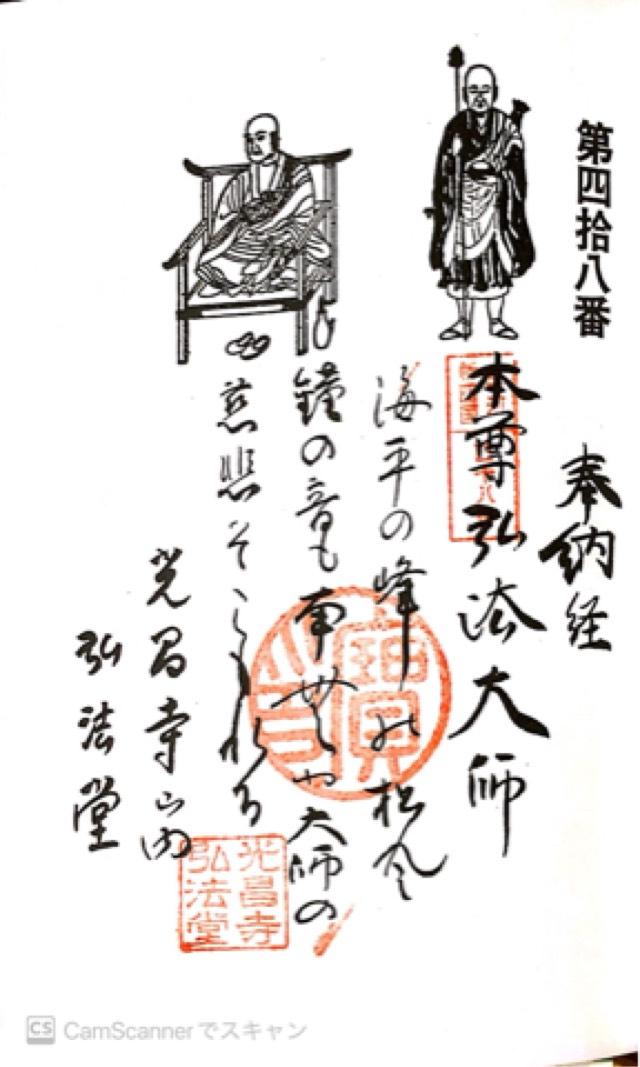 第四拾八番
奉納経
本尊弘法大師
海平の峰の松風
鐘の音も南無や大師の
慈悲そこもれる
光昌寺山内
弘法堂
寳印
光昌寺
弘法堂
CS CamScannerでスキャン